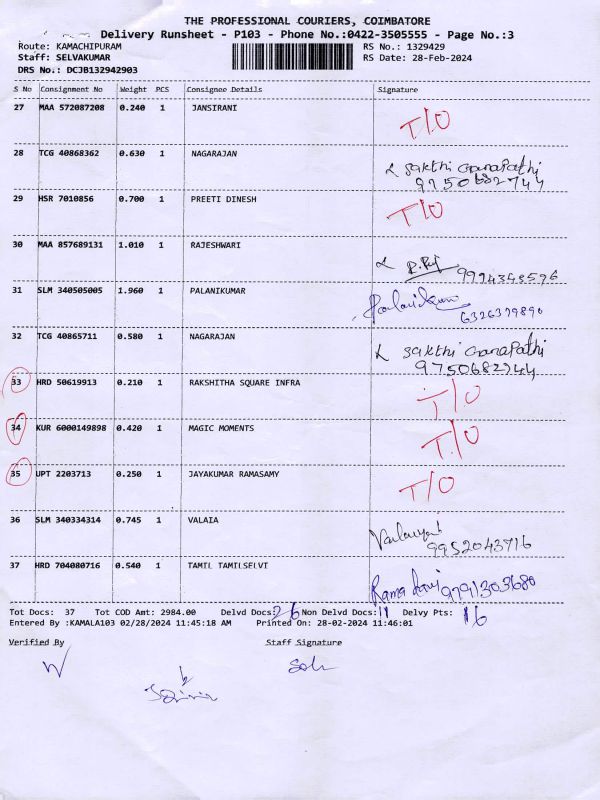 THE PROFESSIONAL COURIERS, COIMBATORE
Delivery Runsheet - P103 - Phone No.:0422-3505555 - Page No.:3
Route: KAMACHIPURAM RS No.: 1329429
Staff: SELVAKUMAR RS Date: 28-Feb-2024
DRS No.: DCJB132942903
S No Consignment No Weight PCS Consignee Details Signature
27 MAA 572087208 0.240 1 JANSIRANI T/O
28 TCG 40868362 0.630 1 NAGARAJAN Sakthi Ganapathi
9750682744
29 HSR 7010856 0.700 1 PREETI DINESH T/O
30 MAA 857689131 1.010 1 RAJESHWARI
31 SLM 340505005 1.960 1 PALANIKUMAR Palanikumar
6326379890
32 TCG 40865711 0.580 1 NAGARAJAN Sakthi Ganapathi
9750682744
33 HRD 50619913 0.210 1 RAKSHITHA SQUARE INFRA T/O
34 KUR 6000149898 0.420 1 MAGIC MOMENTS T/O
35 UPT 2203713 0.250 1 JAYAKUMAR RAMASAMY T/O
36 SLM 340334314 0.745 1 VALAIA
9952043716
37 HRD 704080716 0.540 1 TAMIL TAMILSELVI Rama 9791303680
Tot Docs: 37 Tot COD Amt: 2984.00 Delvd Docs: 26 Non Delvd Docs: 11 Delvy Pts: 16
Entered By :KAMALA103 02/28/2024 11:45:18 AM Printed On: 28-02-2024 11:46:01
Verified By Staff Signature